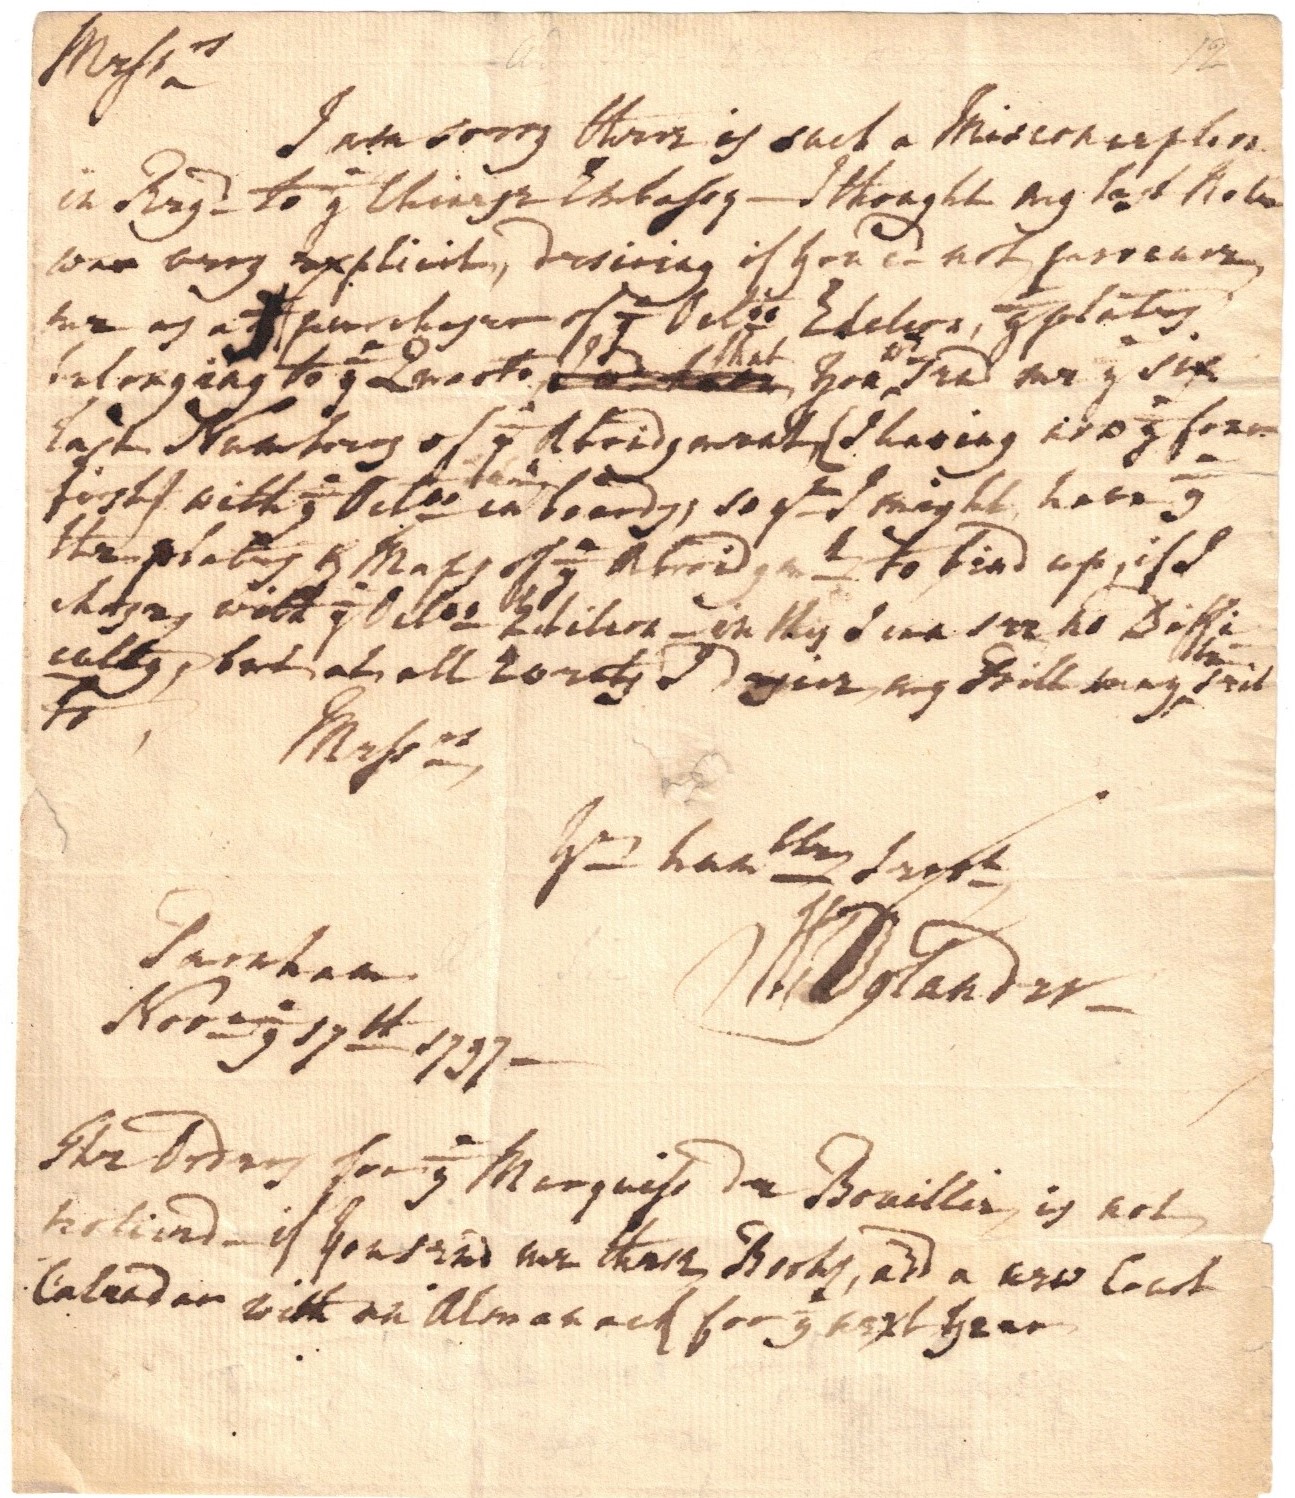 Messrs
12
I am sorry there is such a Misconception
in Regd to ye Chinese Embassy — I thought my last Note
was very explicit, desiring if you cd not procure
me as a purchaser of ye Octvo Edition, ye plates
belonging to ye Quarto, that you wd send me ye six
last Numbers of ye Abridgment, (I having now ye four
first) with ye Octvo in boards, so yt I might have ye
the plates & Maps of ye Abridgmt to bind up, if I
chose, with ye Octvo Edition — in this I can see no Diffi-
culty, but at all Events I desire my Will may be sent
to,
Messrs,
Yr humble Servt,
Wm Bylander
Farnham
Novr ye 17th 1797 —
The Orders for ye Marquiss de Bouillie, is not
noticed — if you send me these Books, and a new Court
Calendar with an Almanack for ye next Year